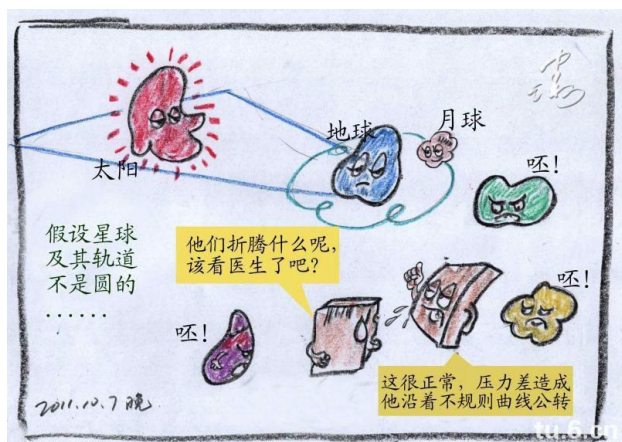 太阳
地球
月球
呸!
假设星球
及其轨道
不是圆的
······
他们折腾什么呢,
该看医生了吧?
呸!
呸!
这很正常,压力差造成
他沿着不规则曲线公转
2011.10.7晚
tu.6.cn